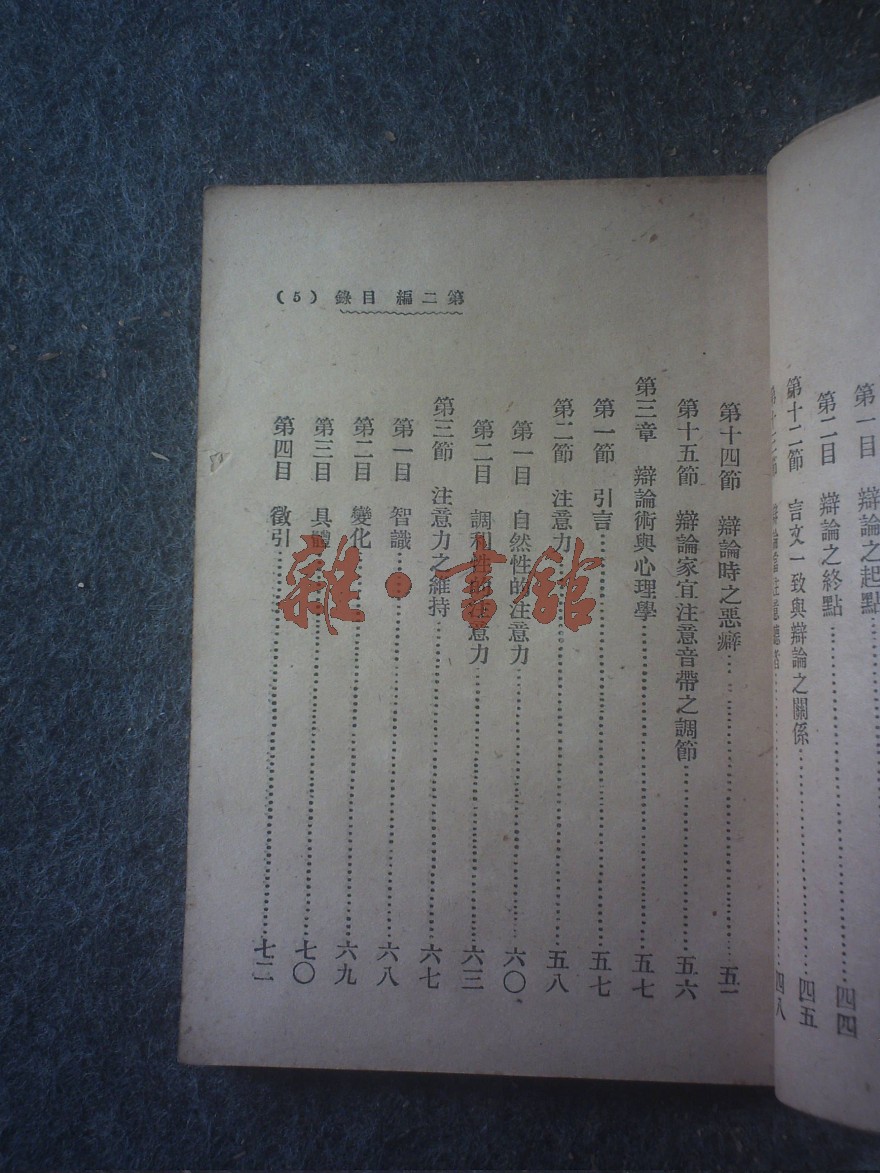 第一目 辯論之起點
第二目 辯論之終點……四四
第十二節 言文一致與辯論之關係……四五
……四八
第二編 目錄 (5)
第十四節 辯論時之惡癖……五一
第十五節 辯論家宜注意音帶之調節……五六
第三章 辯論術與心理學……五七
第一節 引言……五七
第二節 注意力……五八
第一目 自然性的注意力……六〇
第二目 調和性的注意力……六三
第三節 注意力之維持……六七
第一目 智識……六八
第二目 變化……六九
第三目 具體……七〇
第四目 徵引……七二
雜·書館